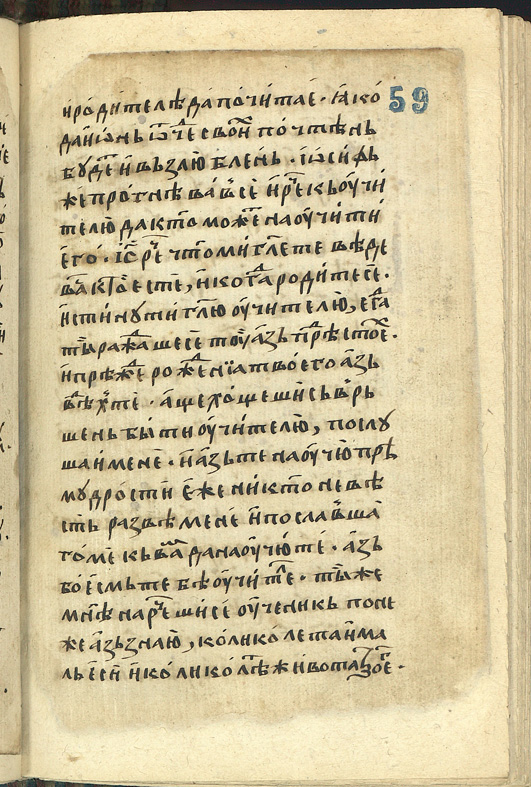 и родителѣ да почитае҇. ꙗко 59
да и҆ѡнь ѿ все свои҆ почтѣнь
буде и҆ възлюблень. і҆ѡ҆сифь
же прогнѣвавсе и҆ рече кь оу҆чи
телю да кто може на оу҆чити
е҆го. і҆с рⷱе что ми гл҃ете вѣде
ва кто е҆сте, и҆ когда родитесе.
и҆стину ти гл҃ю оу҆чителю, егда
ты раждашесе тоу азь прѣстое.
и҆ прѣжⷣе рожⷣенїа твоего а҆зь
бѣхь те. а҆ще хощеши сьврь
шень быти оу҆чителю, послу
шаи мене. и҆ а҆зь те наоу҆чю прѣ
мудрости е҆же никто не вѣ
сть развѣ мене и҆ пославша
го ме кь ва да наоу҆чю те. а҆зь
бо е҆смь тебѣ оу҆читель. ты же
мнѣ нарече ши се оу҆ченикь поне
же а҆зь знаю, колико лета и҆ма
ль е҆си и҆ колико лѣ живота